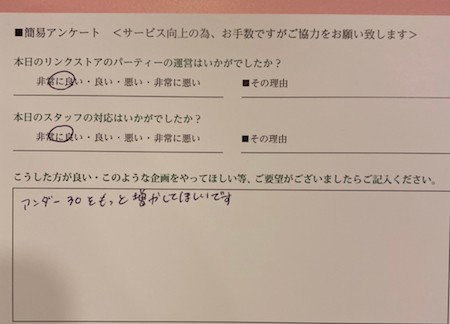 ■簡易アンケート ＜サービス向上の為、お手数ですがご協力をお願い致します＞
本日のリンクストアのパーティーの運営はいかがでしたか？
非常に良い・良い・悪い・非常に悪い ■その理由
本日のスタッフの対応はいかがでしたか？
非常に良い・良い・悪い・非常に悪い ■その理由
こうした方が良い・このような企画をやってほしい等、ご要望がございましたらご記入ください。
アンダー30をもっと増やしてほしいです